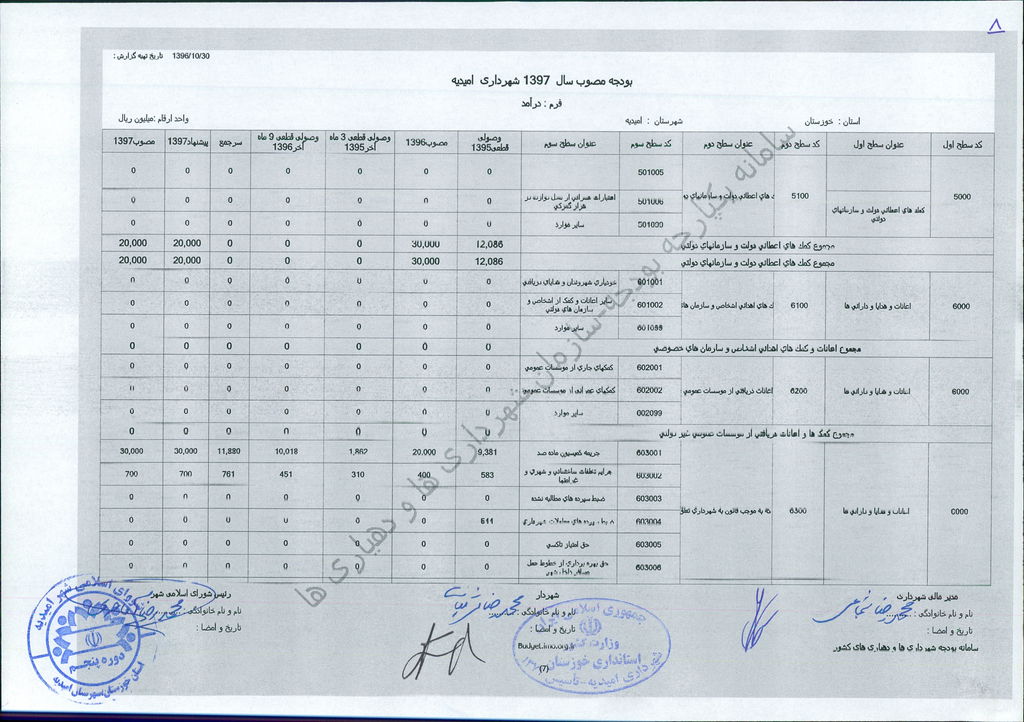 ۸
تاریخ تهیه گزارش : 1396/10/30
بودجه مصوب سال 1397 شهرداری امیدیه
فرم : درآمد
استان : خوزستان شهرستان : امیدیه واحد ارقام :میلیون ریال
کد سطح اول عنوان سطح اول کد سطح دوم عنوان سطح دوم کد سطح سوم عنوان سطح سوم وصولی قطعی1395 مصوب1396 وصولی قطعی 3 ماه آخر1395 وصولی قطعی 9 ماه آخر1396 سرجمع پیشنهاد1397 مصوب1397
5000 کمک های اعطائی دولت و سازمانهای دولتی 5100 ک های اعطائی دولت و سازمانهای دو
501005 0 0 0 0 0 0 0
501006 0 0 0 0 0 0 0
501099 سایر موارد 0 0 0 0 0 0 0
مجموع کمک های اعطائی دولت و سازمانهای دولتی 12,086 30,000 0 0 0 20,000 20,000
مجموع کمک های اعطائی دولت و سازمانهای دولتی 12,086 30,000 0 0 0 20,000 20,000
6000 اعانات و هدایا و دارائی ها 6100 ک های اهدائی اشخاص و سازمان های
601001 خودیاری شهروندان و هدایای دریافتی 0 0 0 0 0 0 0
601002 سایر اعانات و کمک از اشخاص و سازمان های دولتی 0 0 0 0 0 0 0
601099 سایر موارد 0 0 0 0 0 0 0
مجموع اعانات و کمک های اهدائی اشخاص و سازمان های خصوصی 0 0 0 0 0 0 0
6000 اعانات و هدایا و دارائی ها 6200 اعانات دریافتی از موسسات عمومی
602001 کمکهای جاری از موسسات عمومی 0 0 0 0 0 0 0
602002 کمکهای عمرانی از موسسات عمومی 0 0 0 0 0 0 0
602099 سایر موارد 0 0 0 0 0 0 0
مجموع کمک ها و اعانات دریافتی از موسسات عمومی غیر دولتی 0 0 0 0 0 0 0
6000 اعانات و هدایا و دارائی ها 6300 که به موجب قانون به شهرداری تعلق
603001 جریمه کمیسیون ماده صد 9,381 20,000 1,862 10,018 11,880 30,000 30,000
603002 جرایم تخلفات ساختمانی و شهری و 583 400 310 451 761 700 700
603003 ضبط سپرده های مطالبه نشده 0 0 0 0 0 0 0
603004 ضبط سپرده های معاملات شهرداری 611 0 0 0 0 0 0
603005 حق امتیاز تاکسی 0 0 0 0 0 0 0
603006 حق بهره برداری از خطوط حمل مسافر داخل شهر 0 0 0 0 0 0 0
مدیر مالی شهرداری شهردار رئیس شورای اسلامی شهر
نام و نام خانوادگی : نام و نام خانوادگی : نام و نام خانوادگی :
تاریخ و امضا : تاریخ و امضا : تاریخ و امضا :
سامانه بودجه شهرداری ها و دهیاری های کشور Budget.imo.org.ir
(7)
سامانه یکپارچه بودجه-سازمان شهرداری ها و دهیاری ها
شورای اسلامی شهر امیدیه
دوره پنجم
استان خوزستان-شهرستان امیدیه
جمهوری اسلامی ایران
وزارت کشور
استانداری خوزستان
شهرداری امیدیه - تاسیس